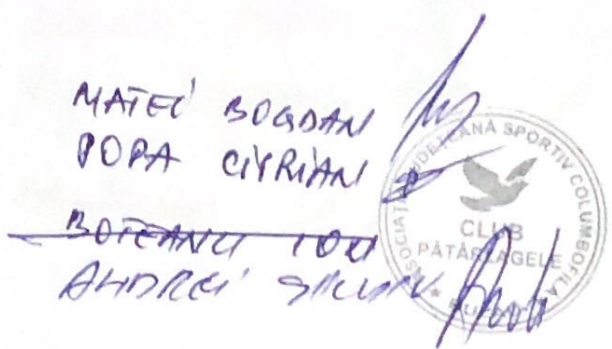 MATEI BOGDAN
POPA CIPRIAN
BOTEANU ION
ANDREI
ASOCIAȚIA JUDEȚEANĂ SPORTIV COLUMBOFILĂ
CLUB
PĂTÂRLAGELE